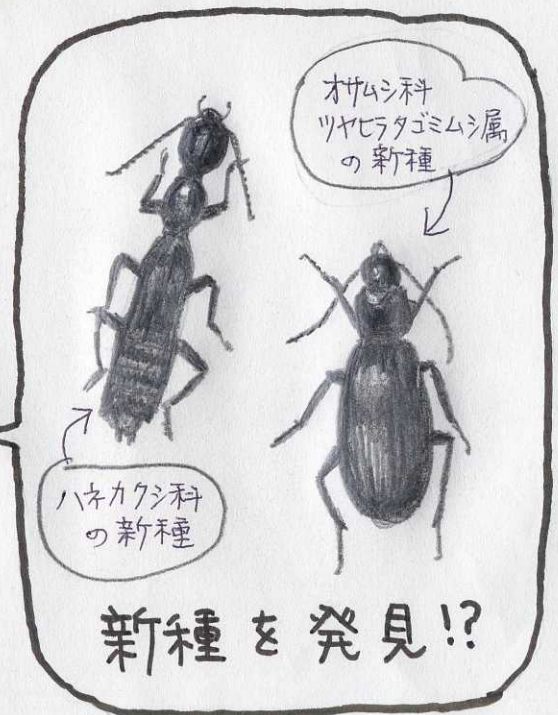 オサムシ科
ツヤヒラタゴミムシ属
の新種
ハネカクシ科
の新種
新種を発見!?